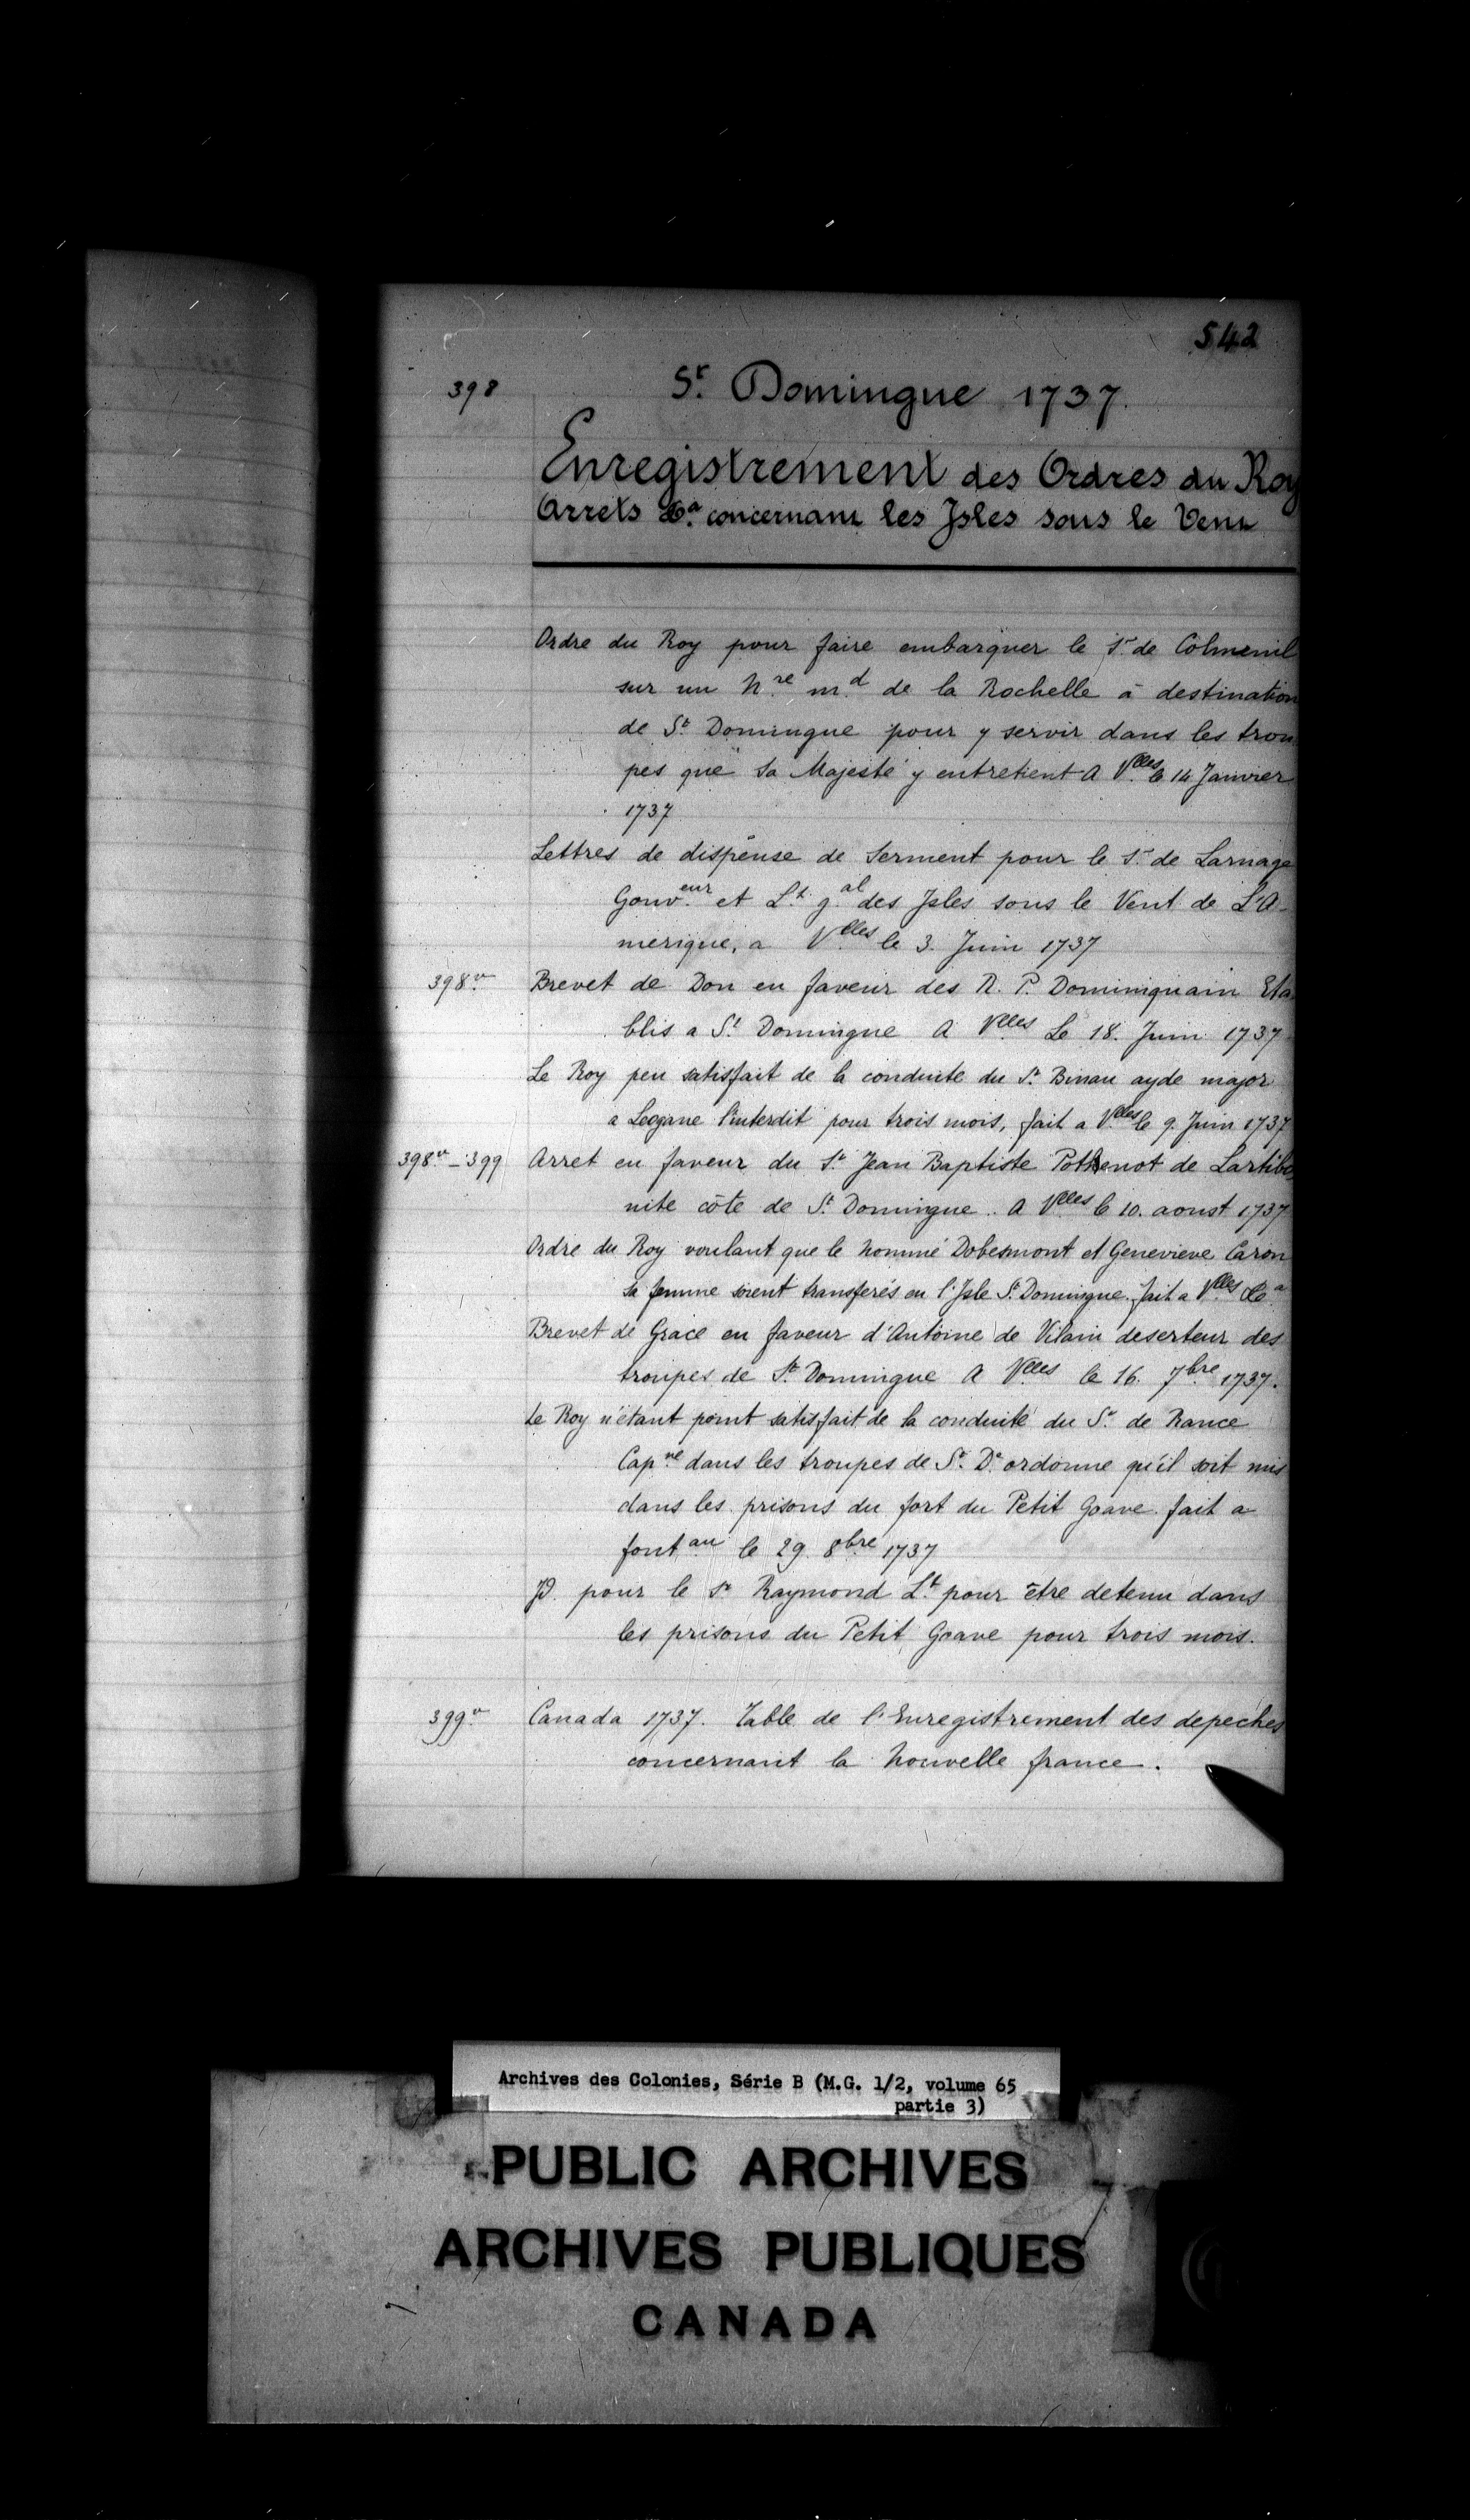 542
398 St. Domingue 1737.
Enregistrement des Ordres du Roy
Arrets &a. concernant les Isles sous le Vent
Ordre du Roy pour faire embarquer le Sr. de Colmenil
sur un Nre. md. de la Rochelle à destination
de St. Domingue pour y servir dans les trou
pes que Sa Majesté y entretient A Vlles. le 14 Janvier
1737
Lettres de dispense de Serment pour le Sr. de Larnage
Gouveur. et Lt. gal. des Isles sous le Vent de L'A-
merique, a Vlles. le 3. Juin 1737
398v. Brevet de Don en faveur des R. P. Dominiquain Eta-
blis a St. Domingue A Vlles. Le 18. Juin 1737
Le Roy peu satisfait de la conduite du Sr. Binau ayde major
a Leogane l'interdit pour trois mois, fait a Vlles. le 9. Juin 1737
398v. - 399 Arret en faveur du Sr. Jean Baptiste Pothenot de Lartibo
nite côte de St. Domingue. A Vlles. le 10. aoust 1737
Ordre du Roy voulant que le nommé Dobesmont et Genevieve Caron
sa femme soient transferés en l'Isle St. Domingue. fait a Vlles. &a.
Brevet de Grace en faveur d'Antoine de Vilain deserteur des
troupes de St. Domingue A Vlles. le 16. 7bre. 1737.
Le Roy n'étant point satisfait de la conduite du Sr. de Rance
Capne. dans les troupes de St. De. ordonne qu'il soit mis
dans les prisons du fort du Petit Goave. fait a
fontau. le 29. 8bre. 1737
Id. pour le Sr. Raymond Lt. pour être detenu dans
les prisons du Petit Goave pour trois mois.
399v. Canada 1737. Table de l'Enregistrement des depeches
concernant la Nouvelle france.
Archives des Colonies, Série B (M.G. 1/2, volume 65
partie 3)
PUBLIC ARCHIVES
ARCHIVES PUBLIQUES
CANADA